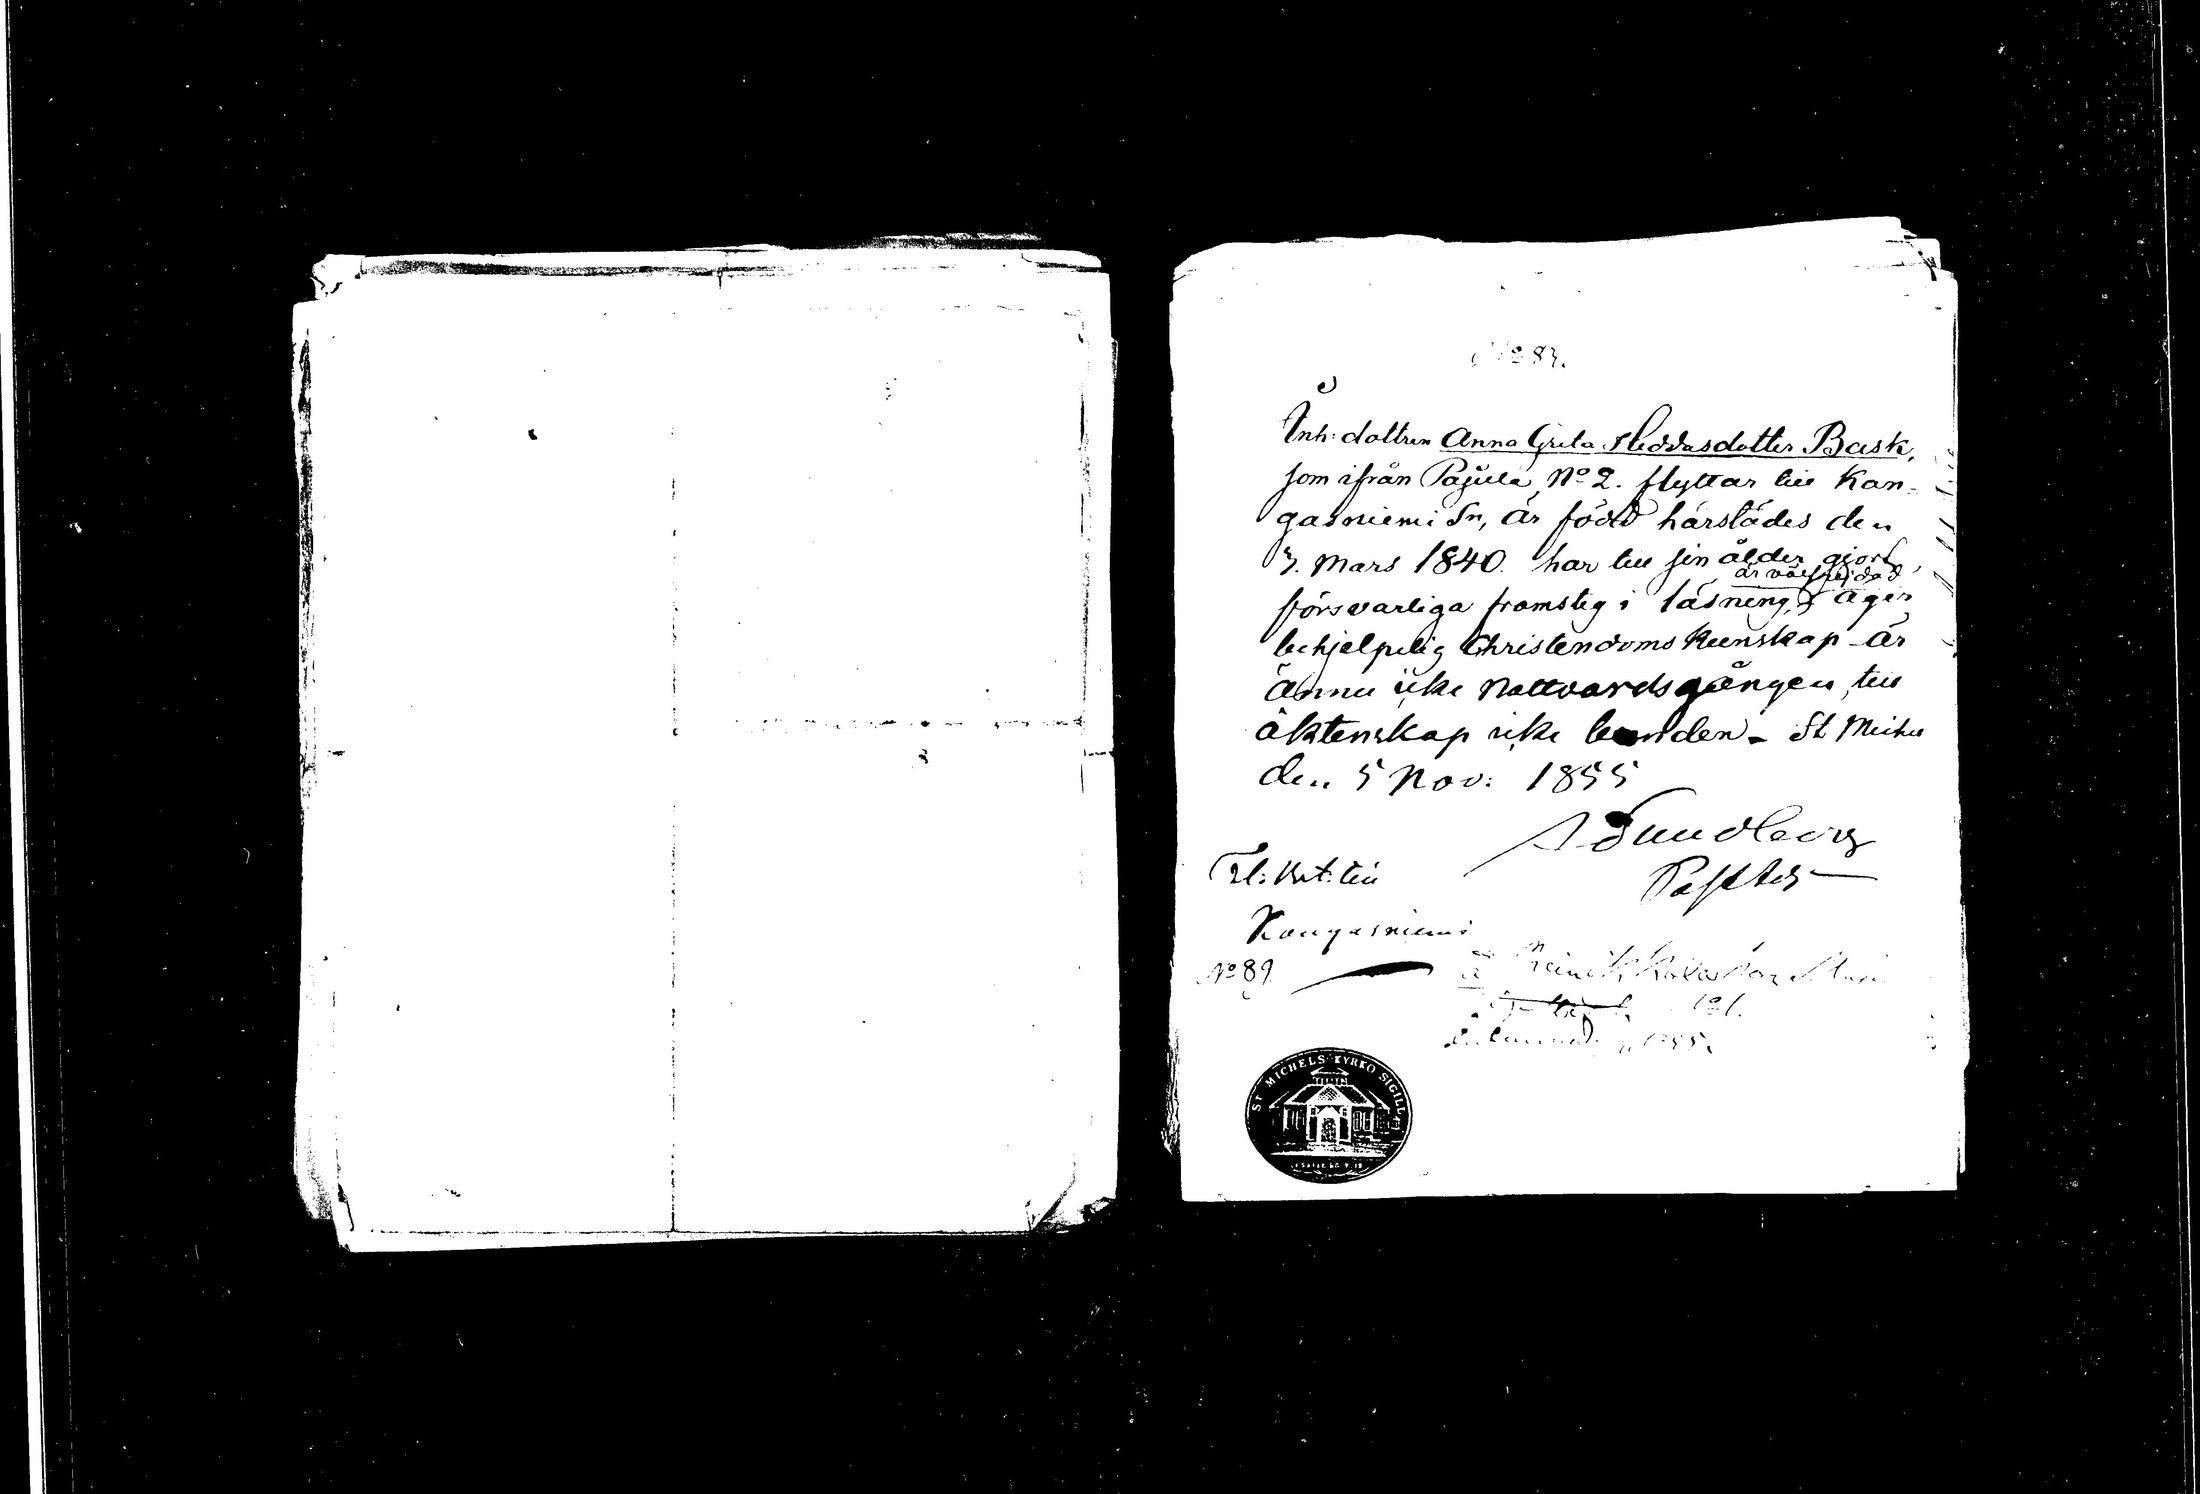 No 83.
Inh: dottren Anna Greta Heddasdotter Bask,
som ifrån Pajula No 2. flyttar till Kan-
gasniemi Sn, är född härstädes den
3. Mars 1840. har till sin ålder gjort
är vaccinerad
försvarliga framsteg i läsning, äger
behjelpelig Christendoms kunskap är
ännu icke Nattvardsgången, till
äktenskap icke bunden. St Michel
den 5 Nov: 1855
A Sundberg
Pastor
Fl: Bet: till
Kangasniemi
No 89
ST MICHELS KYRKO SIGILL